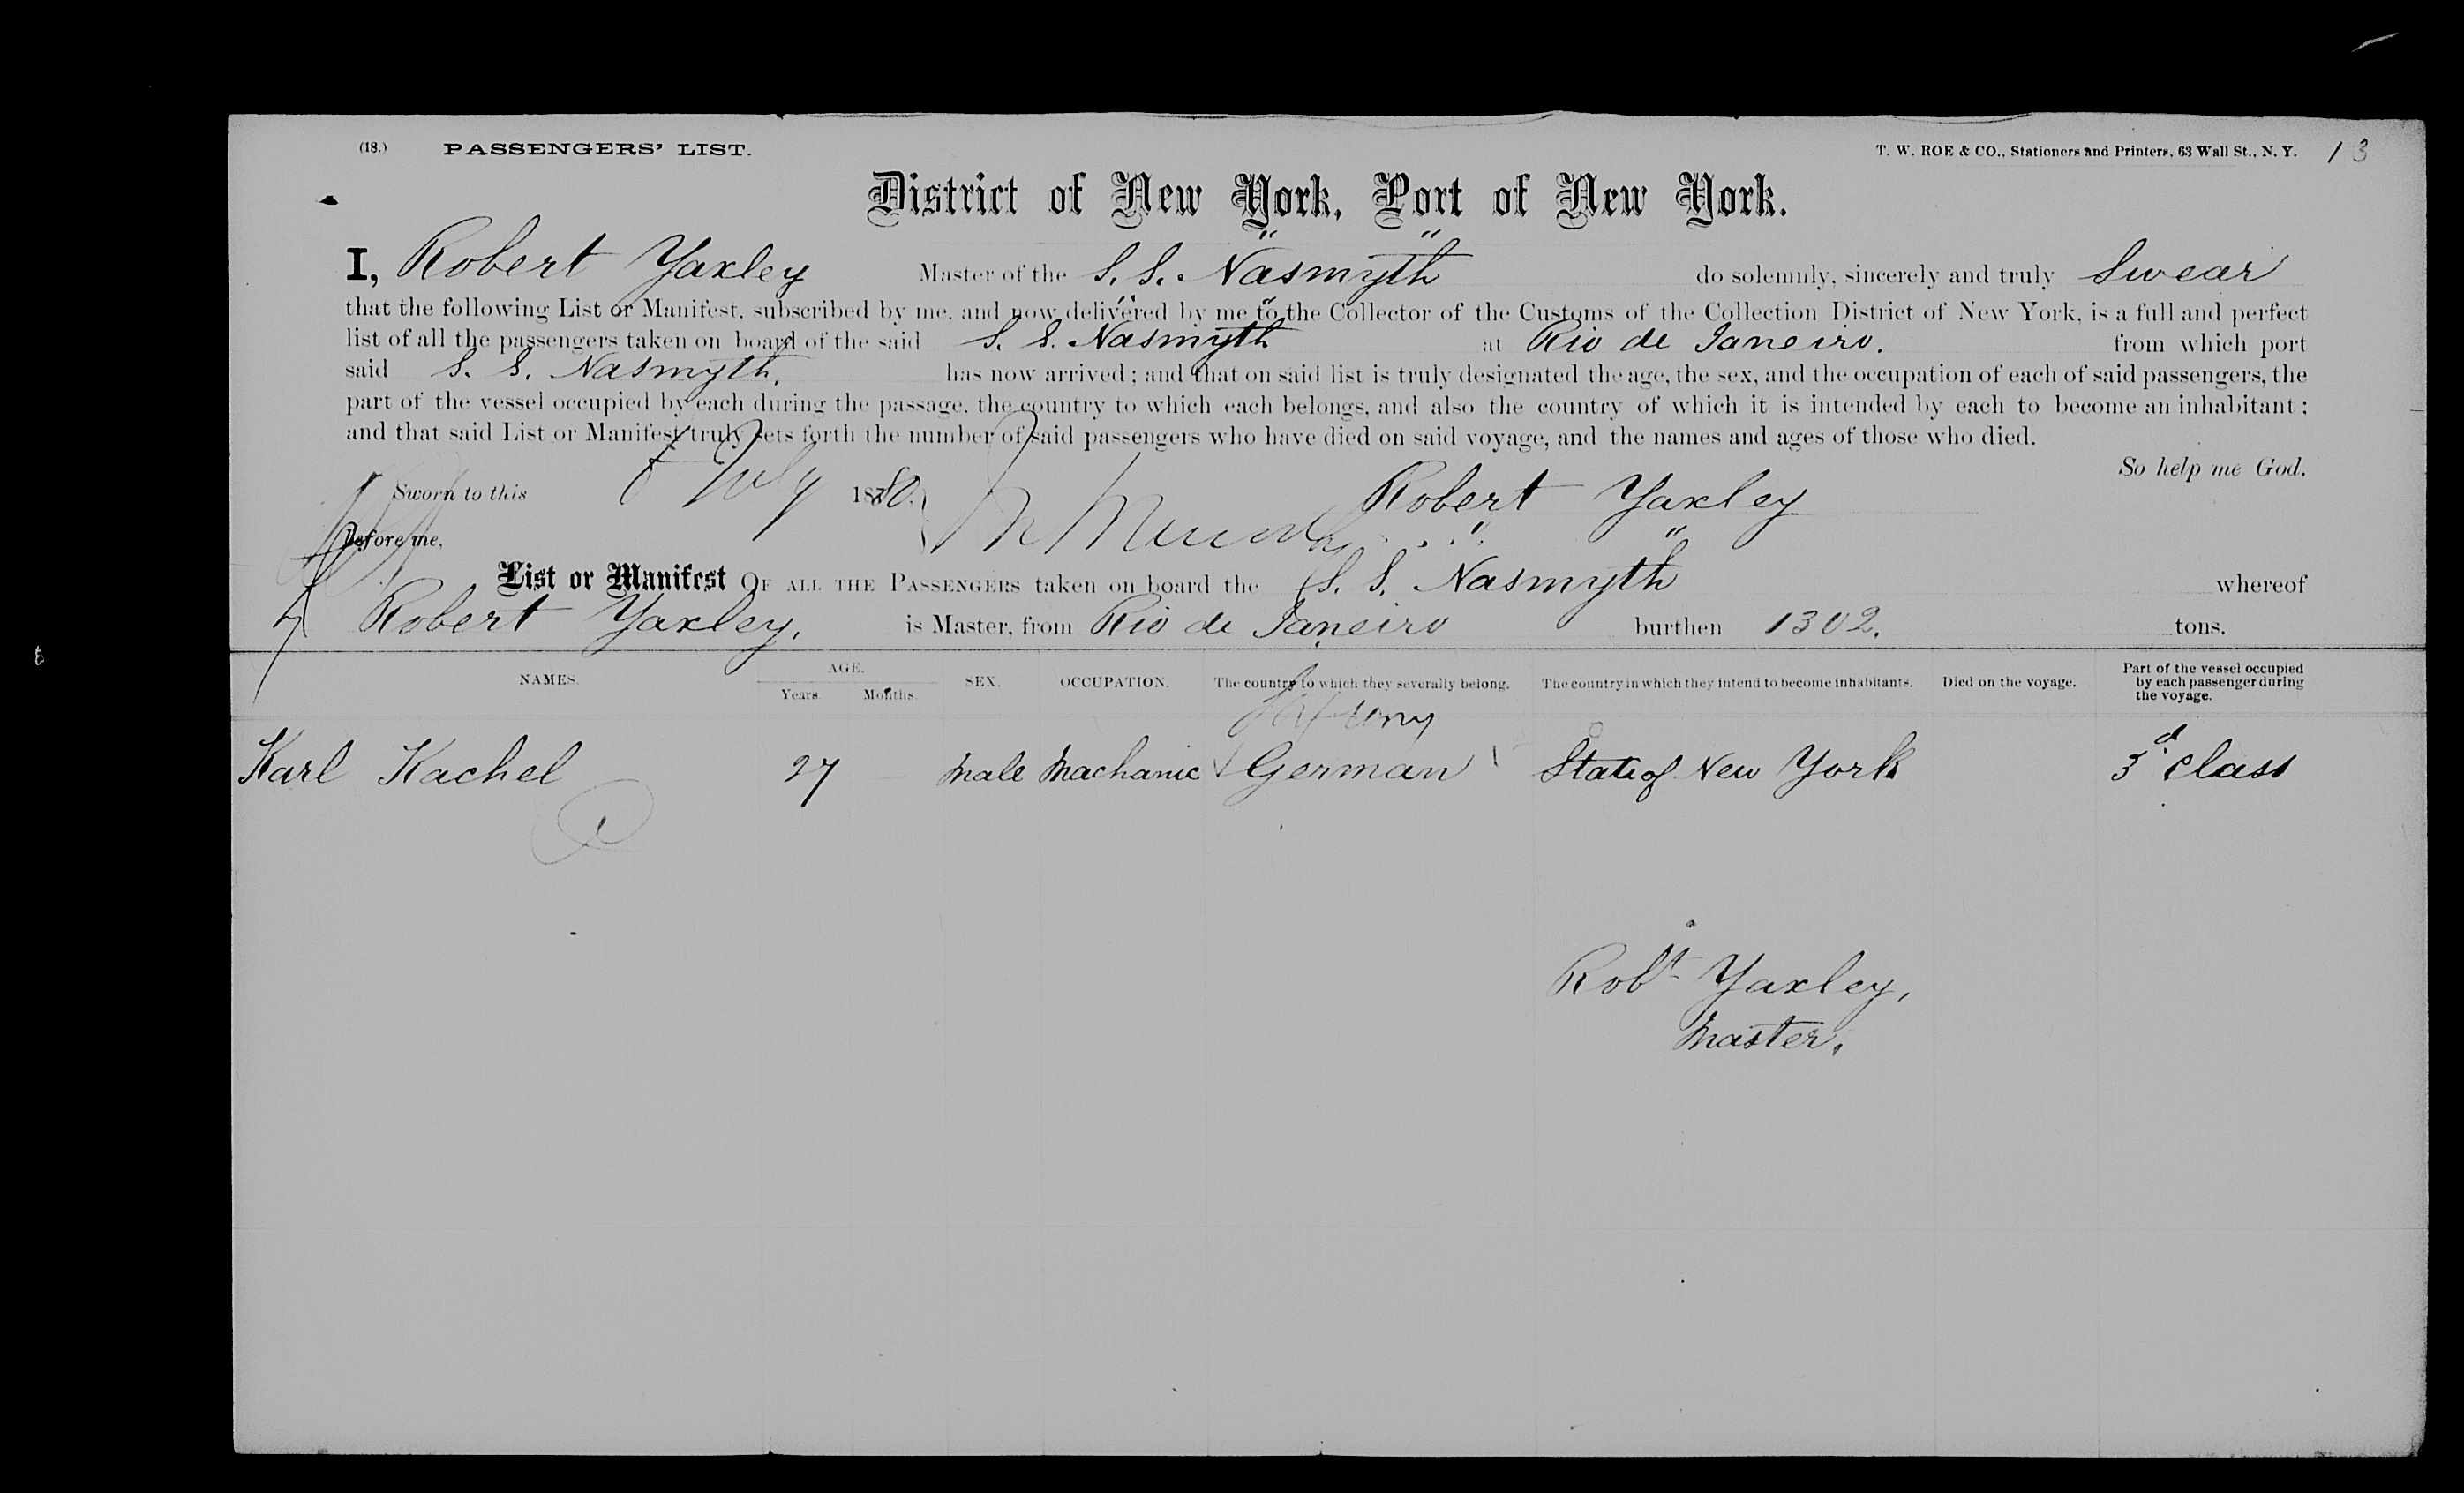 (18.) PASSENGERS' LIST. T. W. ROE & CO., Stationers and Printers, 63 Wall St., N. Y. 13
District of New York, Port of New York.
I, Robert Yaxley Master of the S. S. Nasmyth do solemnly, sincerely and truly Swear
that the following List or Manifest, subscribed by me, and now delivered by me to the Collector of the Customs of the Collection District of New York, is a full and perfect
list of all the passengers taken on board of the said S. S. Nasmyth at Rio de Janeiro. from which port
said S. S. Nasmyth, has now arrived; and that on said list is truly designated the age, the sex, and the occupation of each of said passengers, the
part of the vessel occupied by each during the passage, the country to which each belongs, and also the country of which it is intended by each to become an inhabitant;
and that said List or Manifest truly sets forth the number of said passengers who have died on said voyage, and the names and ages of those who died.
So help me God.
Sworn to this July 1880. Robert Yaxley
Before me,
List or Manifest OF ALL THE PASSENGERS taken on board the S. S. Nasmyth whereof
Robert Yaxley, is Master, from Rio de Janeiro burthen 1302. tons.
NAMES. AGE. Years. Months. SEX. OCCUPATION. The country to which they severally belong. The country in which they intend to become inhabitants. Died on the voyage. Part of the vessel occupied by each passenger during the voyage.
Karl Kachel 27 Male Machanic German State of New York 3d class
Robt Yaxley,
Master.